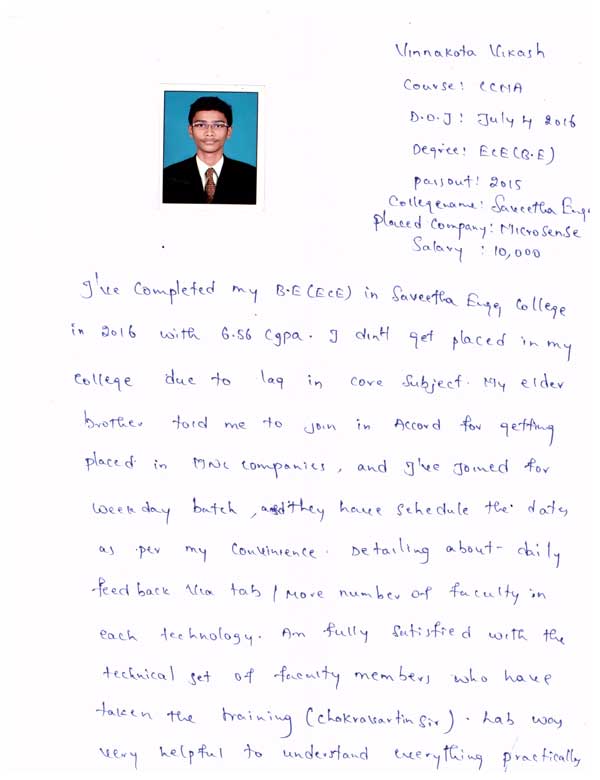 Vinnakota Vikash
Course: CCNA
D.O.J: July 4 2016
Degree: ECE(B.E)
passout: 2015
Collegename: Saveetha Engg
placed Company: Microsense
Salary : 10,000
I've Completed my B.E(ECE) in Saveetha Engg, College
in 2016 with 6.56 Cgpa. I din't get placed in my
College due to lag in core Subject. My elder
brother told me to join in Accord for getting
placed in MNC Companies, and I've Joined for
weekday batch, and they have schedule the dates
as per my Convinience. Detailing about daily
feedback Via tab / More number of faculty in
each technology. Am fully Satisfied with the
technical set of faculty members who have
taken the training (Chakravartin Sir). Lab was
very helpful to understand everything practically